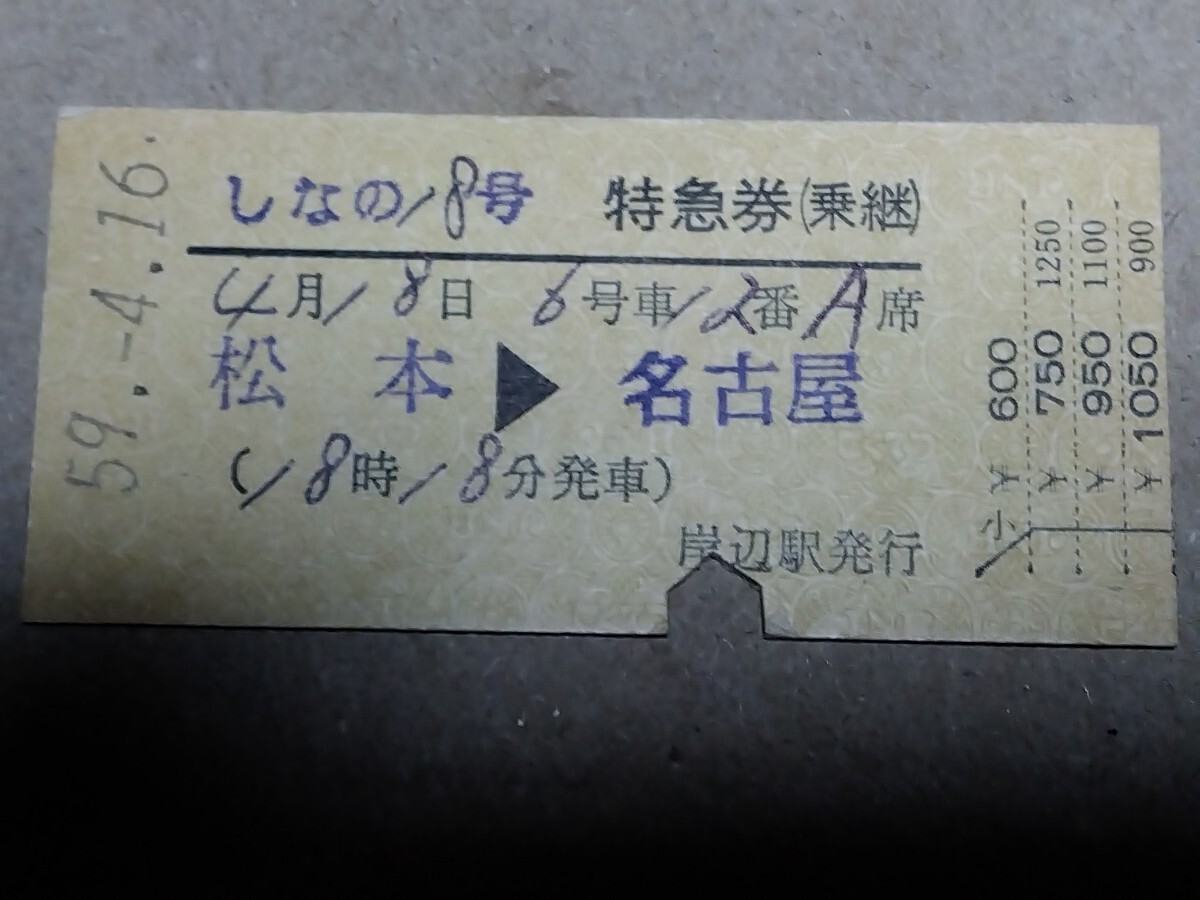 59.-4.16.
しなの18号 特急券(乗継)
4月18日 6号車12番A席
松本▶名古屋
(18時18分発車)
岸辺駅発行
小 ¥ 600
¥ 750 1250
¥ 950 1100
¥ 1050 900